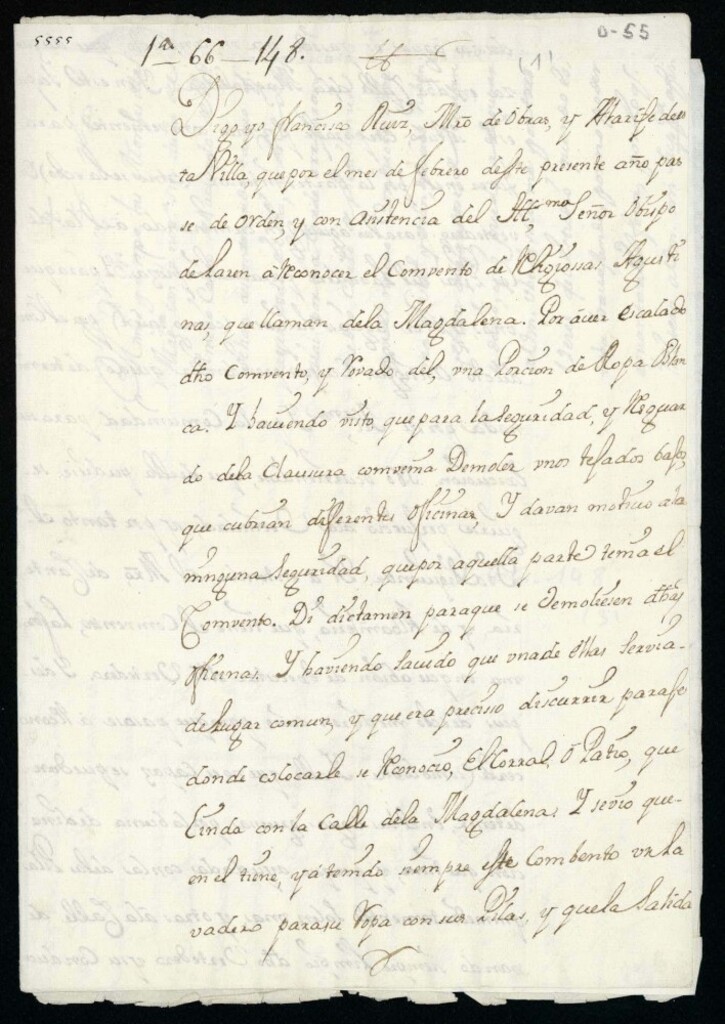 5555
1ª 66 — 148.
0-55
(1)
Digo yo francisco Ruiz, Mro de Obras, y Alarife des
ta Villa, que por el mes de febrero deste presente año pas
se de orden, y con asistencia del Ill.mo Señor Obispo
de Laren a Reconocer el Comvento de Religiossas Agusti
nas, que llaman dela Magdalena. Por aver escalado
dho Comvento, y Rovado del, vna Porcion de Ropa Blan
ca. Y haviendo visto, que para la seguridad, y Resguar
do dela Clausura combenia Demoler vnos tejados bajos,
que cubrian diferentes oficinas, Y davan motivo ala
ninguna seguridad, que por aquella parte tenia el
Comvento. Di dictamen paraque se demoliesen dhas
oficinas. Y haviendo savido que vna de ellas servia
de lugar comun, y que era preciso discurrir paraje
donde colocarle se Reconocio, El Corral, o Patio, que
Linda con la Calle dela Magdalena. Y se vio que
en el tiene, y a tenido siempre este Combento vn la
vadero para su Ropa con sus Pilas, y que la salida